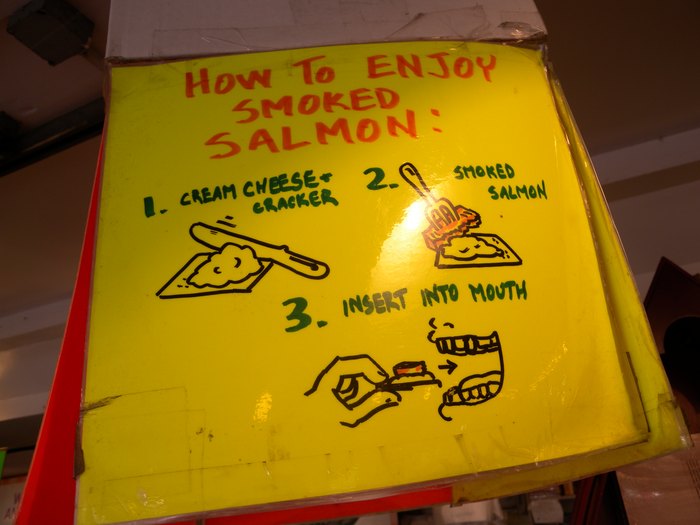 HOW TO ENJOY
SMOKED
SALMON:
1. CREAM CHEESE +
CRACKER
2. SMOKED
SALMON
3. INSERT INTO MOUTH